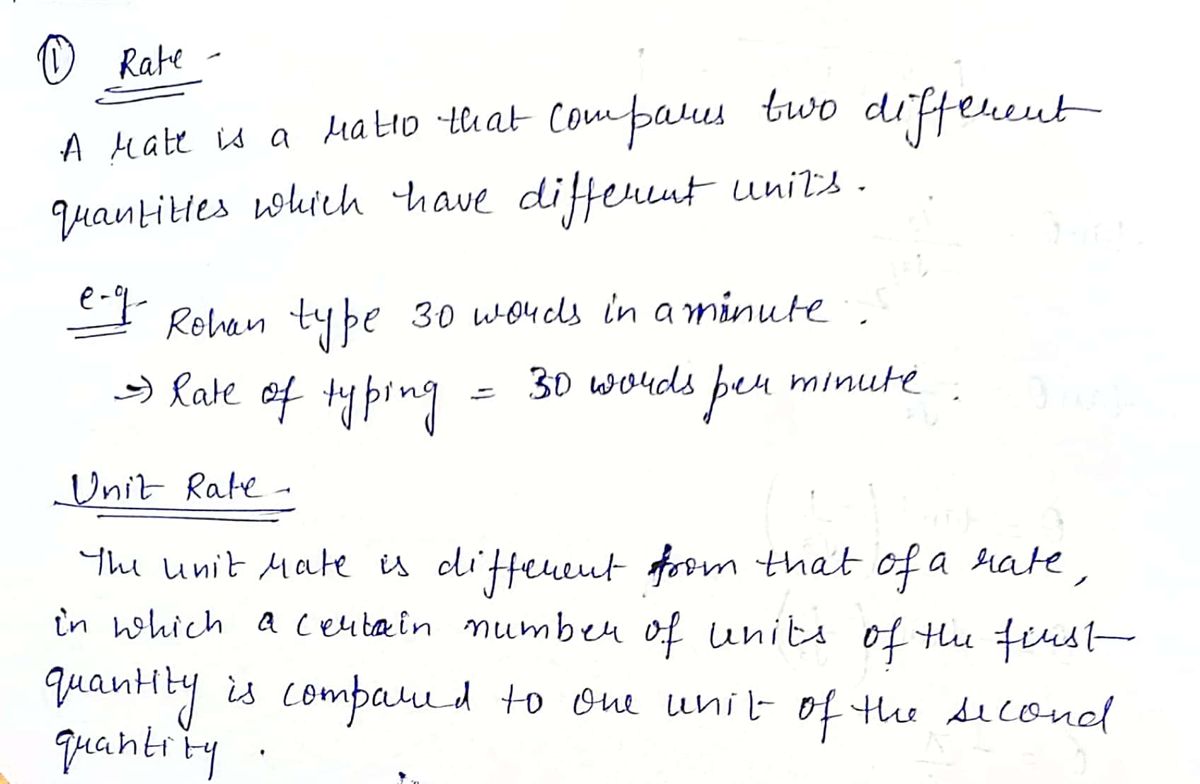 ① Rate -
A rate is a ratio that compares two different
quantities which have different units.
e-g- Rohan type 30 words in a minute.
→ Rate of typing = 30 words per minute.
Unit Rate -
The unit rate is different from that of a rate,
in which a certain number of units of the first
quantity is compared to one unit of the second
quantity.